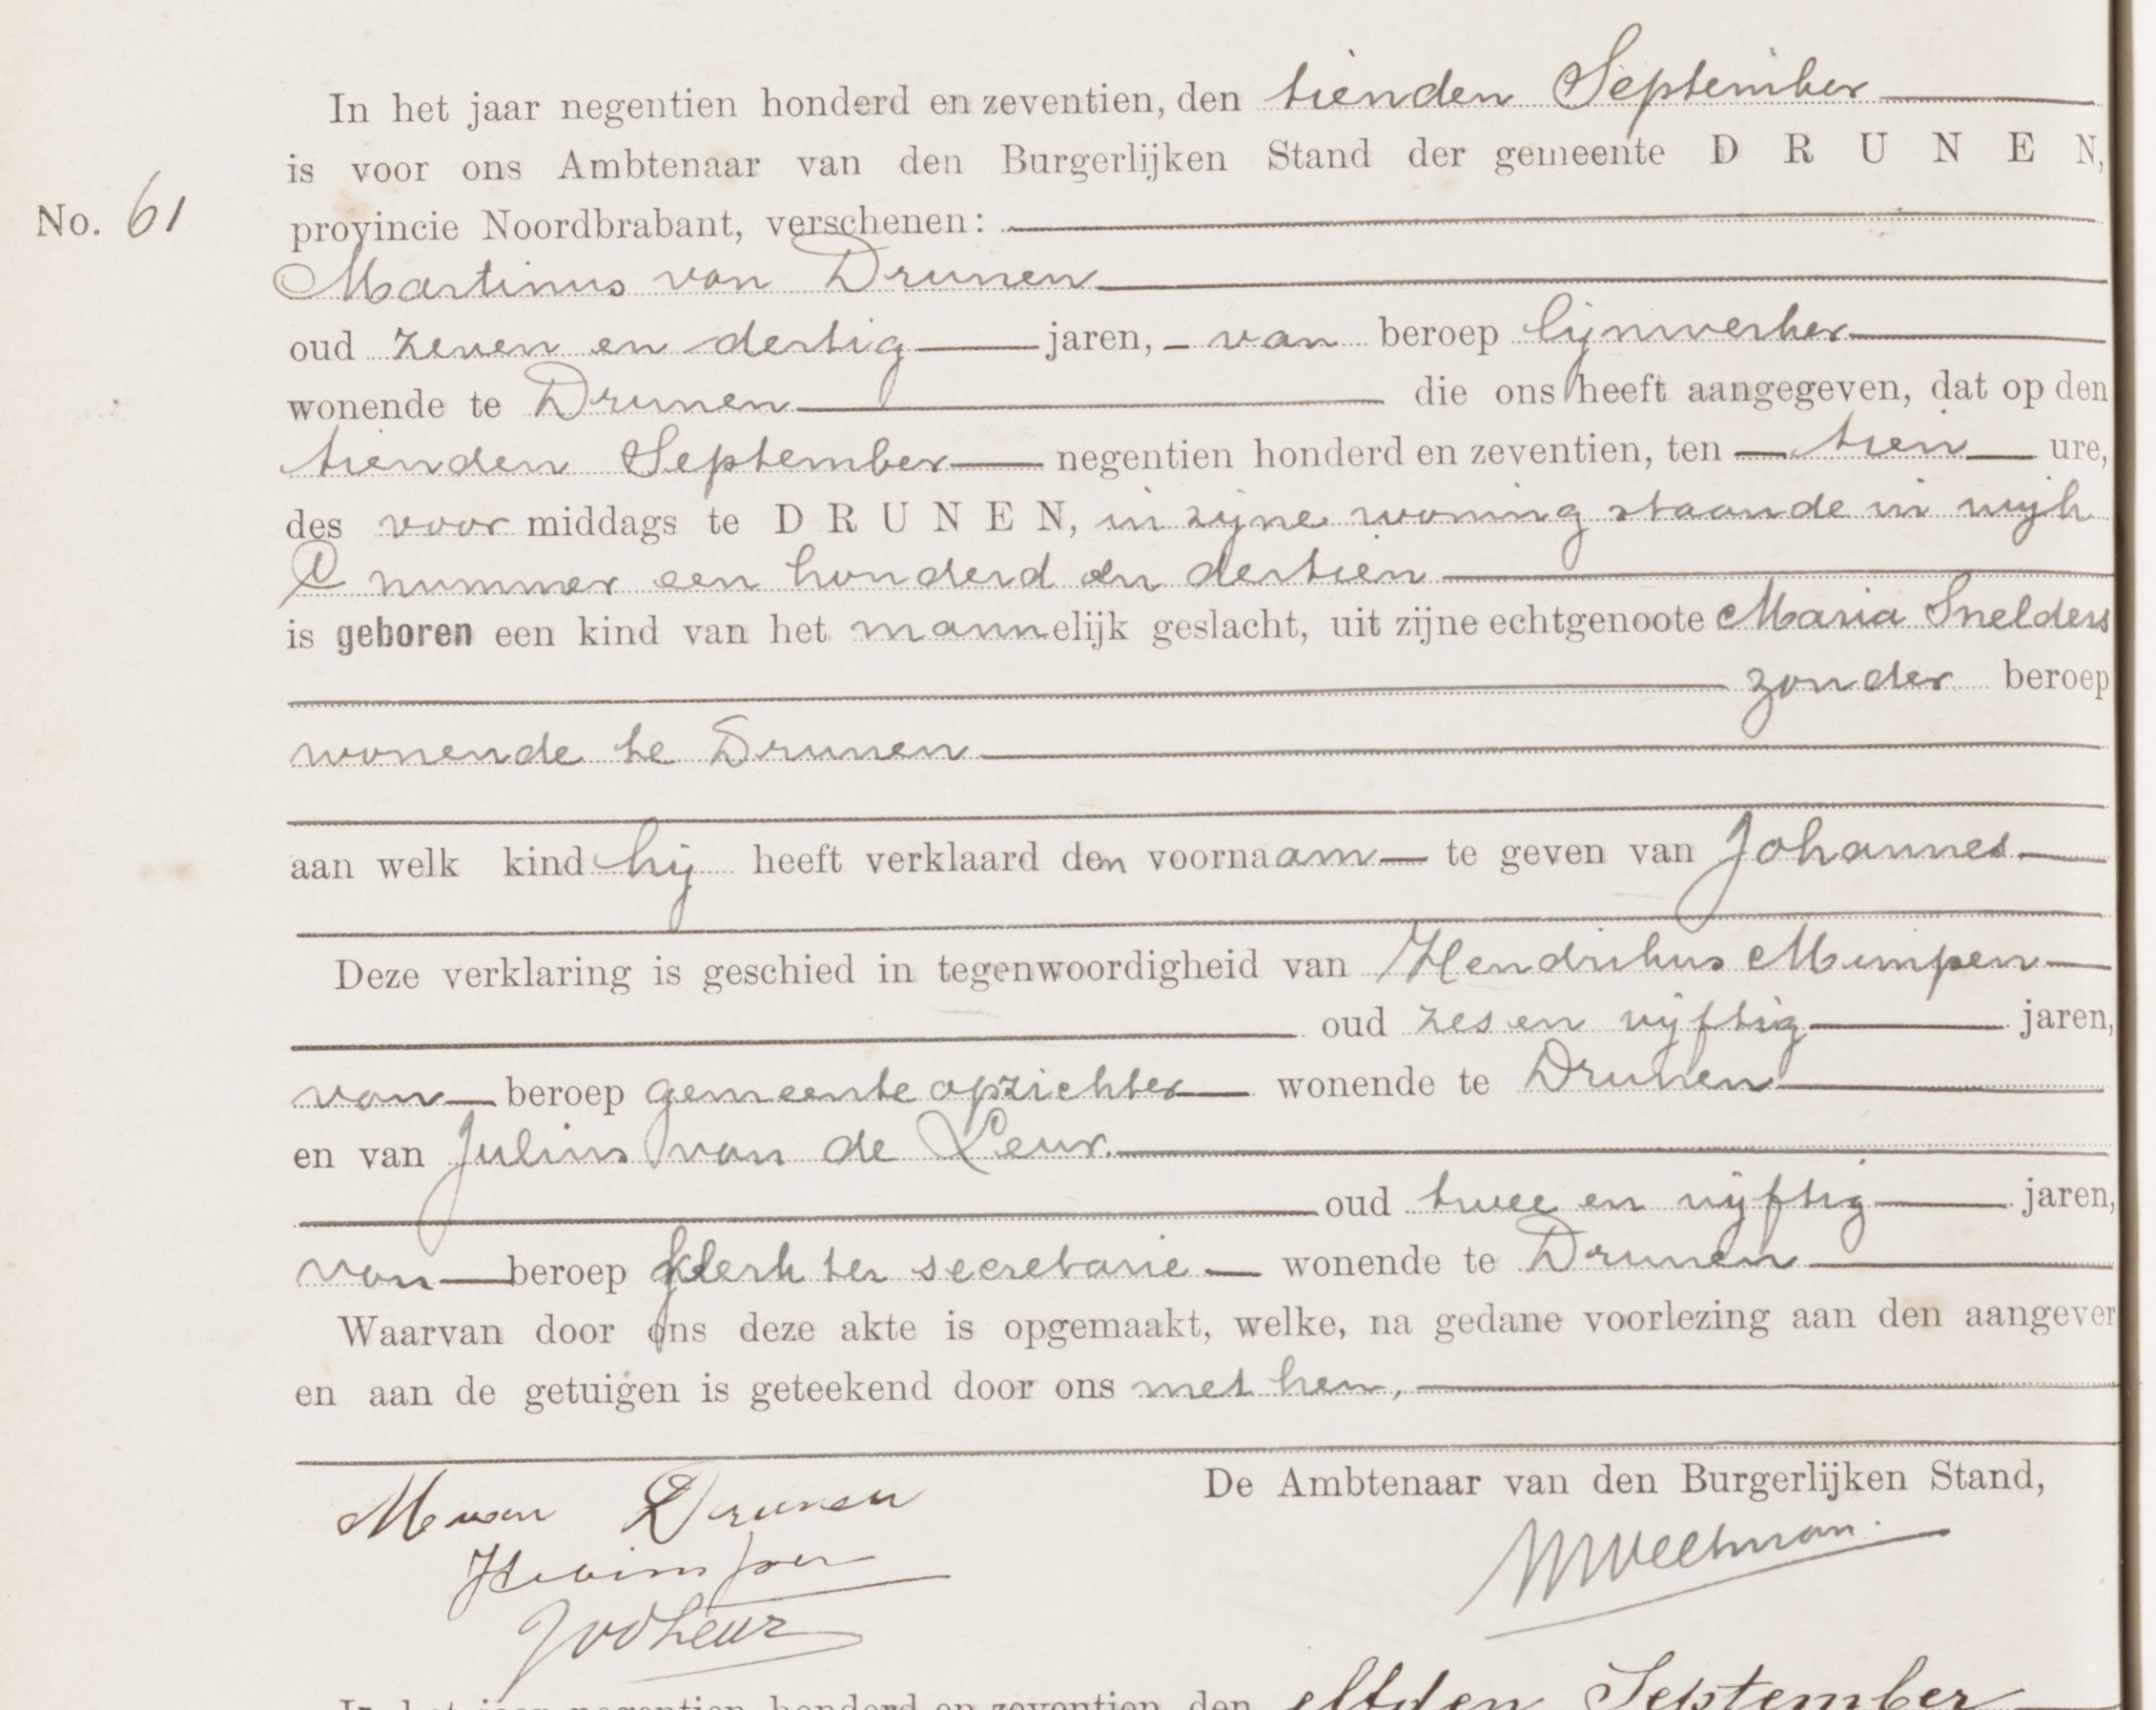 In het jaar negentien honderd en zeventien, den tienden September
is voor ons Ambtenaar van den Burgerlijken Stand der gemeente DRUNEN,
No. 61
provincie Noordbrabant, verschenen:
Martinus van Drunen
oud zeven en dertig jaren, van beroep lijnwerker
wonende te Drunen die ons heeft aangegeven, dat op den
tienden September negentien honderd en zeventien, ten tien ure,
des voor middags te DRUNEN, in zijne woning staande in wijk
nummer een honderd en dertien
is geboren een kind van het mannelijk geslacht, uit zijne echtgenoote Maria Snelders
zonder beroep
wonende te Drunen
aan welk kind hij heeft verklaard den voornaam te geven van Johannes
Deze verklaring is geschied in tegenwoordigheid van Hendrikus Mimpen
oud zes en vijftig jaren,
van beroep gemeenteopzichter wonende te Drunen
en van Julius van de Leur.
oud twee en vijftig jaren,
van beroep klerk ter secretarie wonende te Drunen
Waarvan door ons deze akte is opgemaakt, welke, na gedane voorlezing aan den aangever
en aan de getuigen is geteekend door ons met hen,
De Ambtenaar van den Burgerlijken Stand,
M van Drunen
HMimpen
JvdLeur
In het jaar negentien honderd en zeventien den elfden September